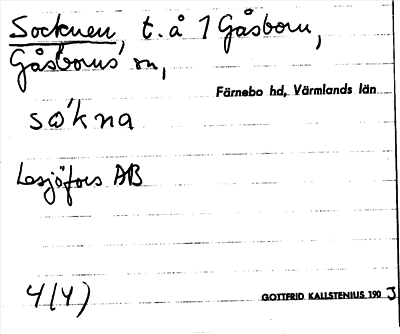 Socknen, t. å 1 Gåsborn,
Gåsborns sn,
Färnebo hd, Värmlands län
så´kna
Lesjöfors AB
4(4) GOTTFRID KALLSTENIUS 1903